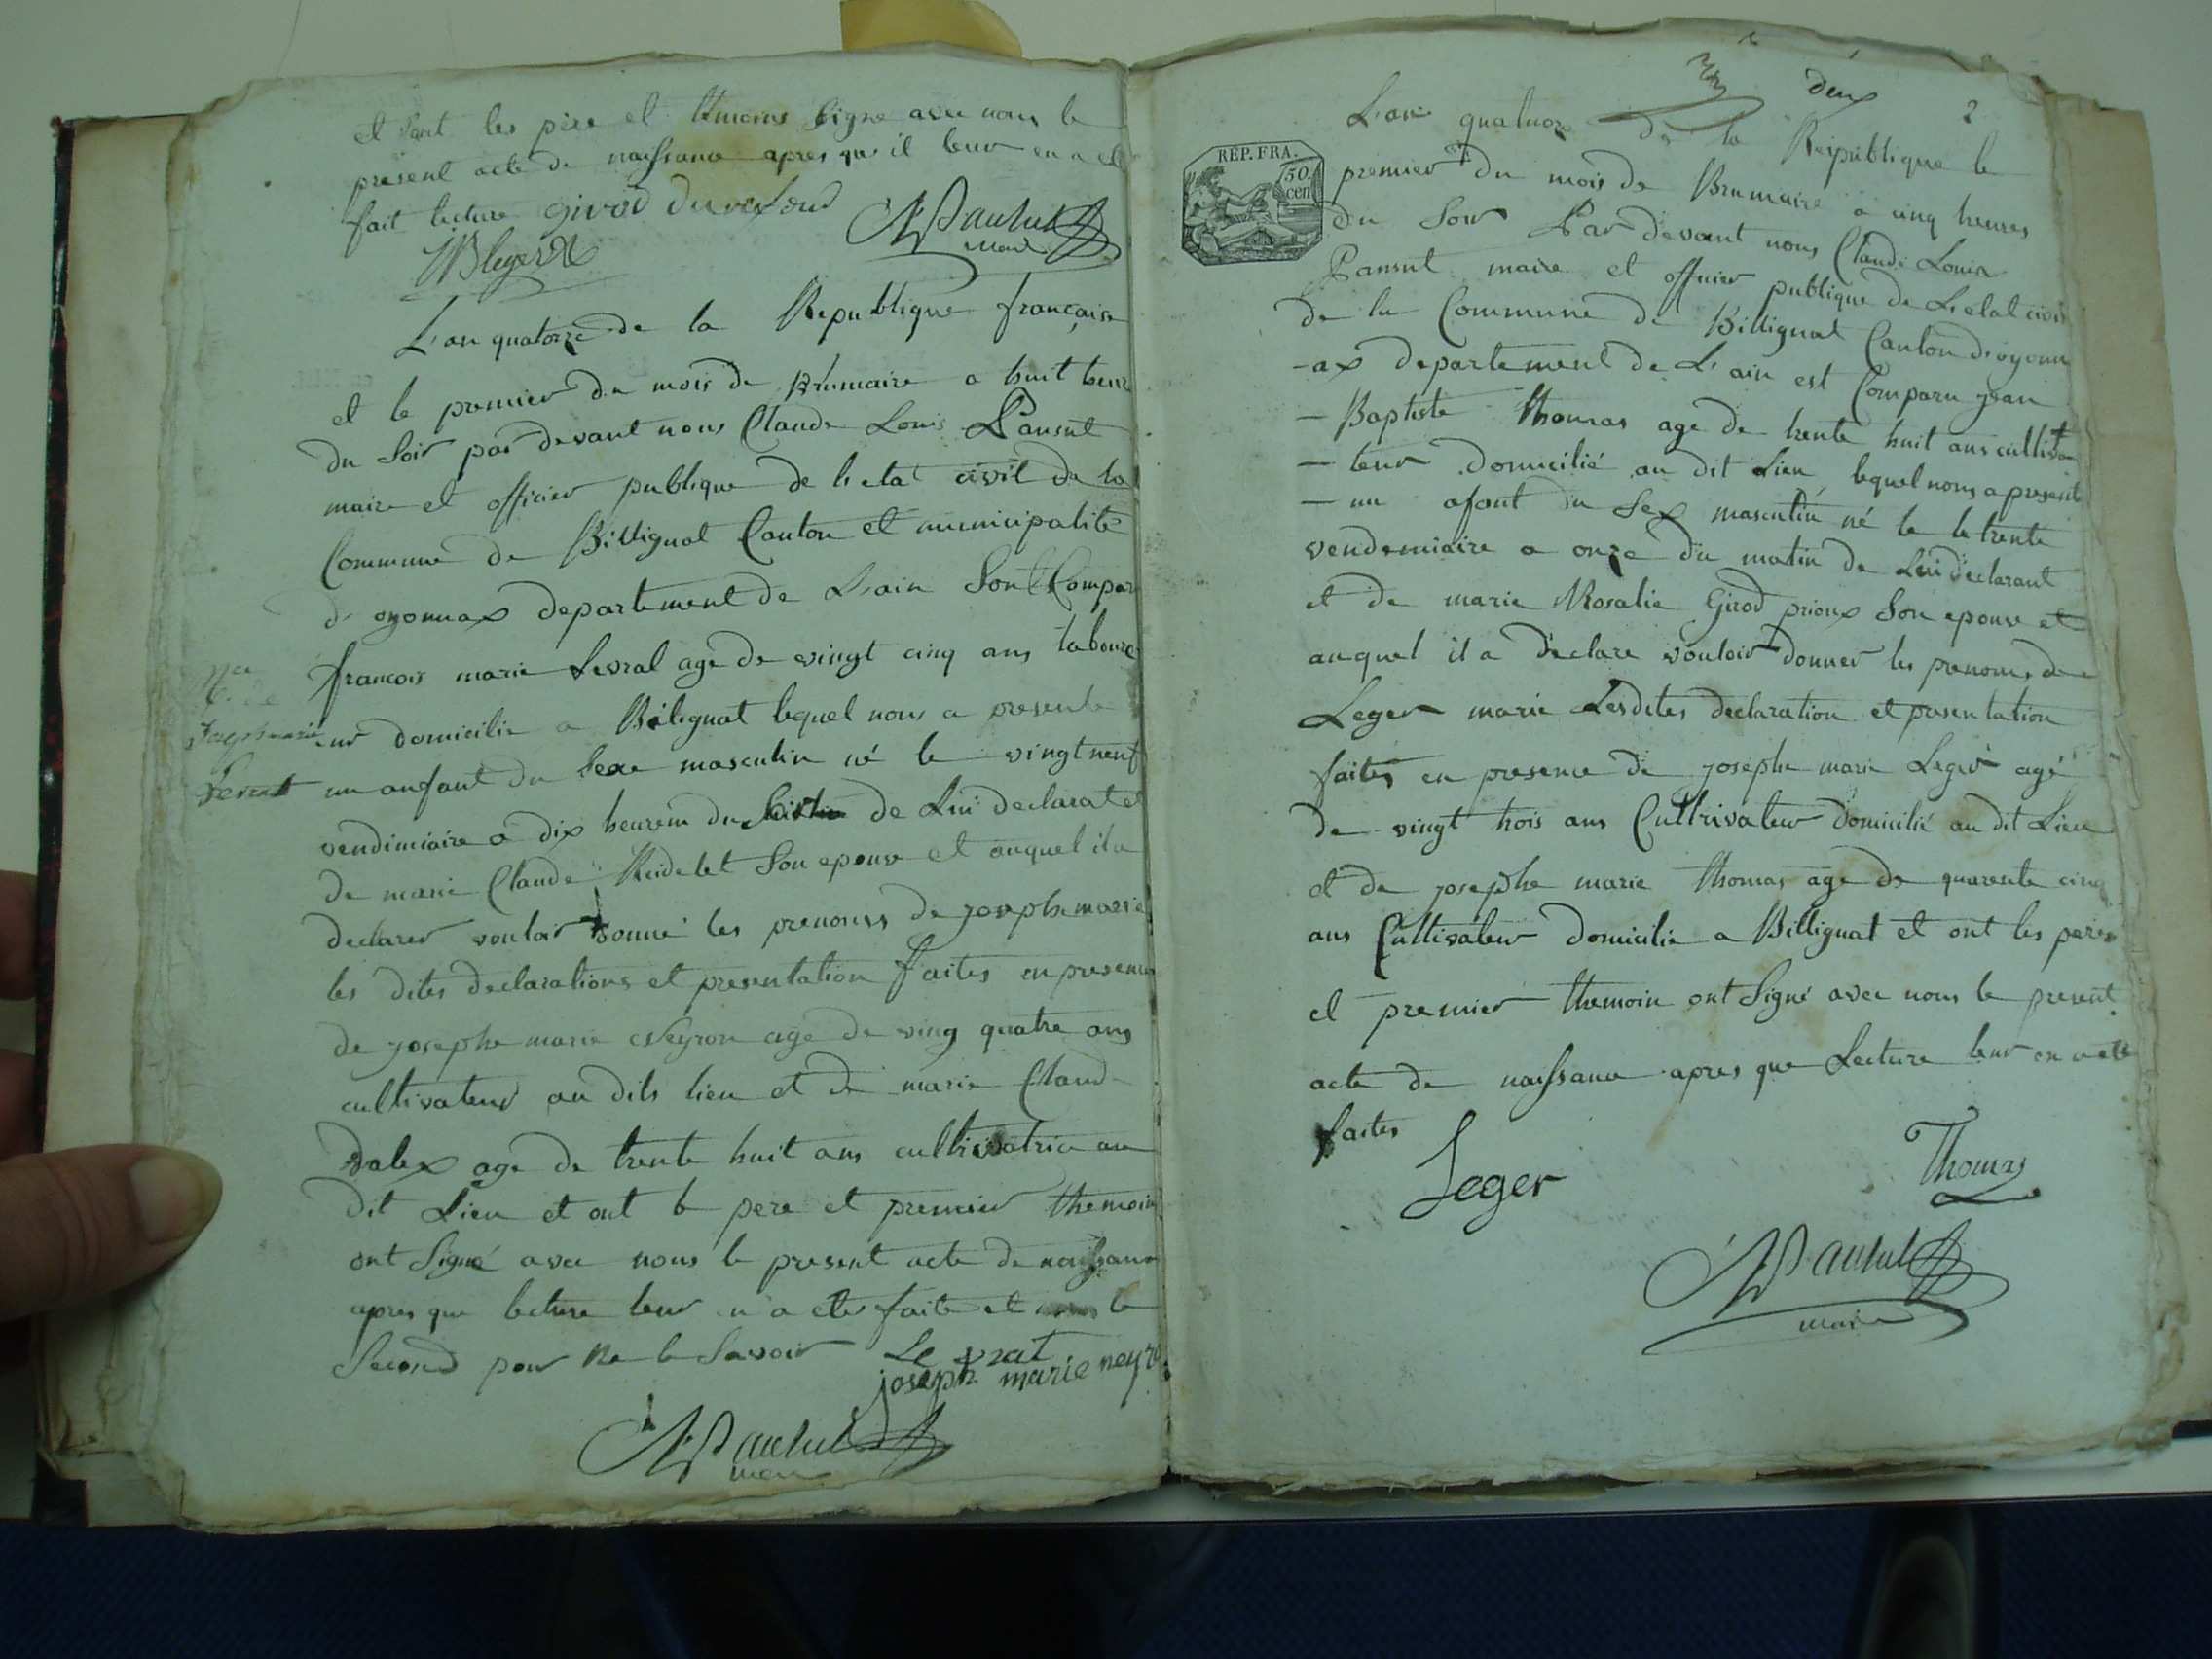 et sont les père et themoins signe avec nous le
présent acte de naissance apres que il leur en a eté
fait lecture girod
JB leger
maire
L'an quatorze de la Republique française
et le premier du mois de Brumaire a huit heur
du soir par devant nous Claude Louis Pansut
maire et officier publique de l'etat civil de la
Commune de Billignat Canton et municipalité
d'oyonnax departement de L'ain Sont Compar
francois marie Levrat age de vingt cinq ans laboure
eur domicilie a Bilignat lequel nous a presente
Joseph marie
Levrat
un anfant du Sexe masculin né le vingt neuf
vendimiaire a dix heurem du de Lui declarat et
de marie Claude Reidelet Son epouse et auquel il a
declarer vouloir donné les prenoms de josephe marie
les dites declarations et presentation faites en presence
de josephe marie Neyron age de ving quatre ans
cultivateur au dits lieu et de marie Claud
age de trente huit ans cultivatrice au
dit Lieu et ont le pere et premier themoin
ont Signé avec nous le present acte de naissance
apres que lecture leur en a eter faite et le
Second pour ne le Savoir Le vrat
joseph marie neyro
maire
deux 2
L'an quatuorze de la Reipublique le
REP. FRA.
50. cent
premier du mois de Brumaire a cinq heures
du Soir Par devant nous Claude Louis
Pansut maire et officier publique de L'etat civil
de la Commune de Billignat Canton d'oyonn
-ax departement de L'ain est Comparu jean
- Baptiste thomas age de trente huit ans cultiva
- teur domicilié au dit Lieu lequel nous a presenté
- un afant du Sex masculin né le le trente
vendemiaire a onze du matin de Lui declarant
et de marie Rosalie Girod prioux Son epouse et
auquel il a declare vouloir donner les prenoms de
Leger marie Lesdites declaration et presentation
faites en presence de josephe marie Leger agé
de vingt trois ans Cultrivateur domicilié au dit Lieu
et de josephe marie thomas age de quarente cinq
ans Cultivateur domicilie a Billignat et ont les peres
et premier themoin ont Signé avec nous le present
acte de naissance apres que Lecture leur en a eté
faites
Leger Thomas
maire